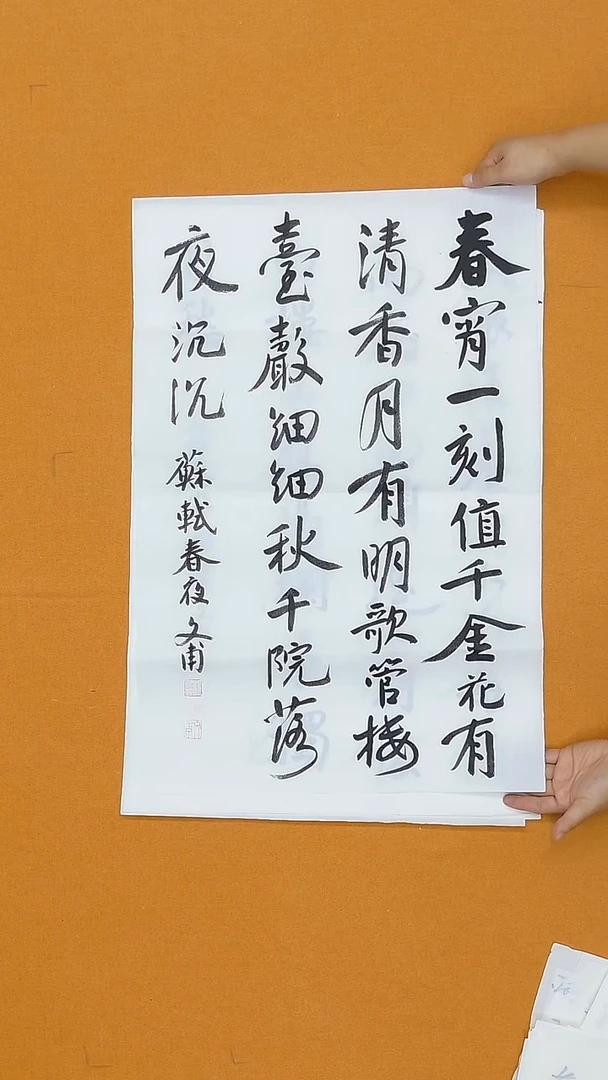 春宵一刻值千金花有
清香月有明歌管樓
臺聲細細秋千院落
夜沉沉
蘇軾春夜 文甫